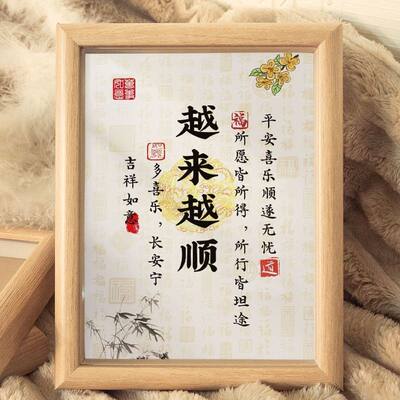 平安喜乐顺遂无忧
福所愿皆所得，所行皆坦途
越来越顺
多喜乐，长安宁
吉祥如意